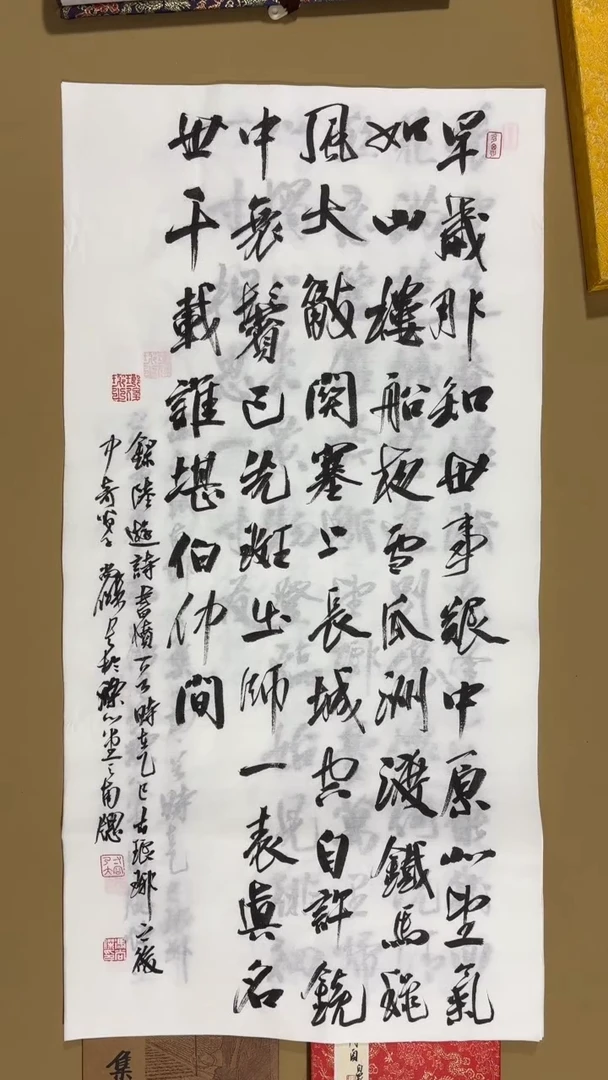 早歲那知世事艱中原北望氣
如山樓船夜雪瓜洲渡鐵馬秋
風大散關塞上長城空自許鏡
中衰鬢已先斑出師一表眞名
世千載誰堪伯仲間
錄陸遊詩書憤時在乙巳古琅琊
堂之南窗
集